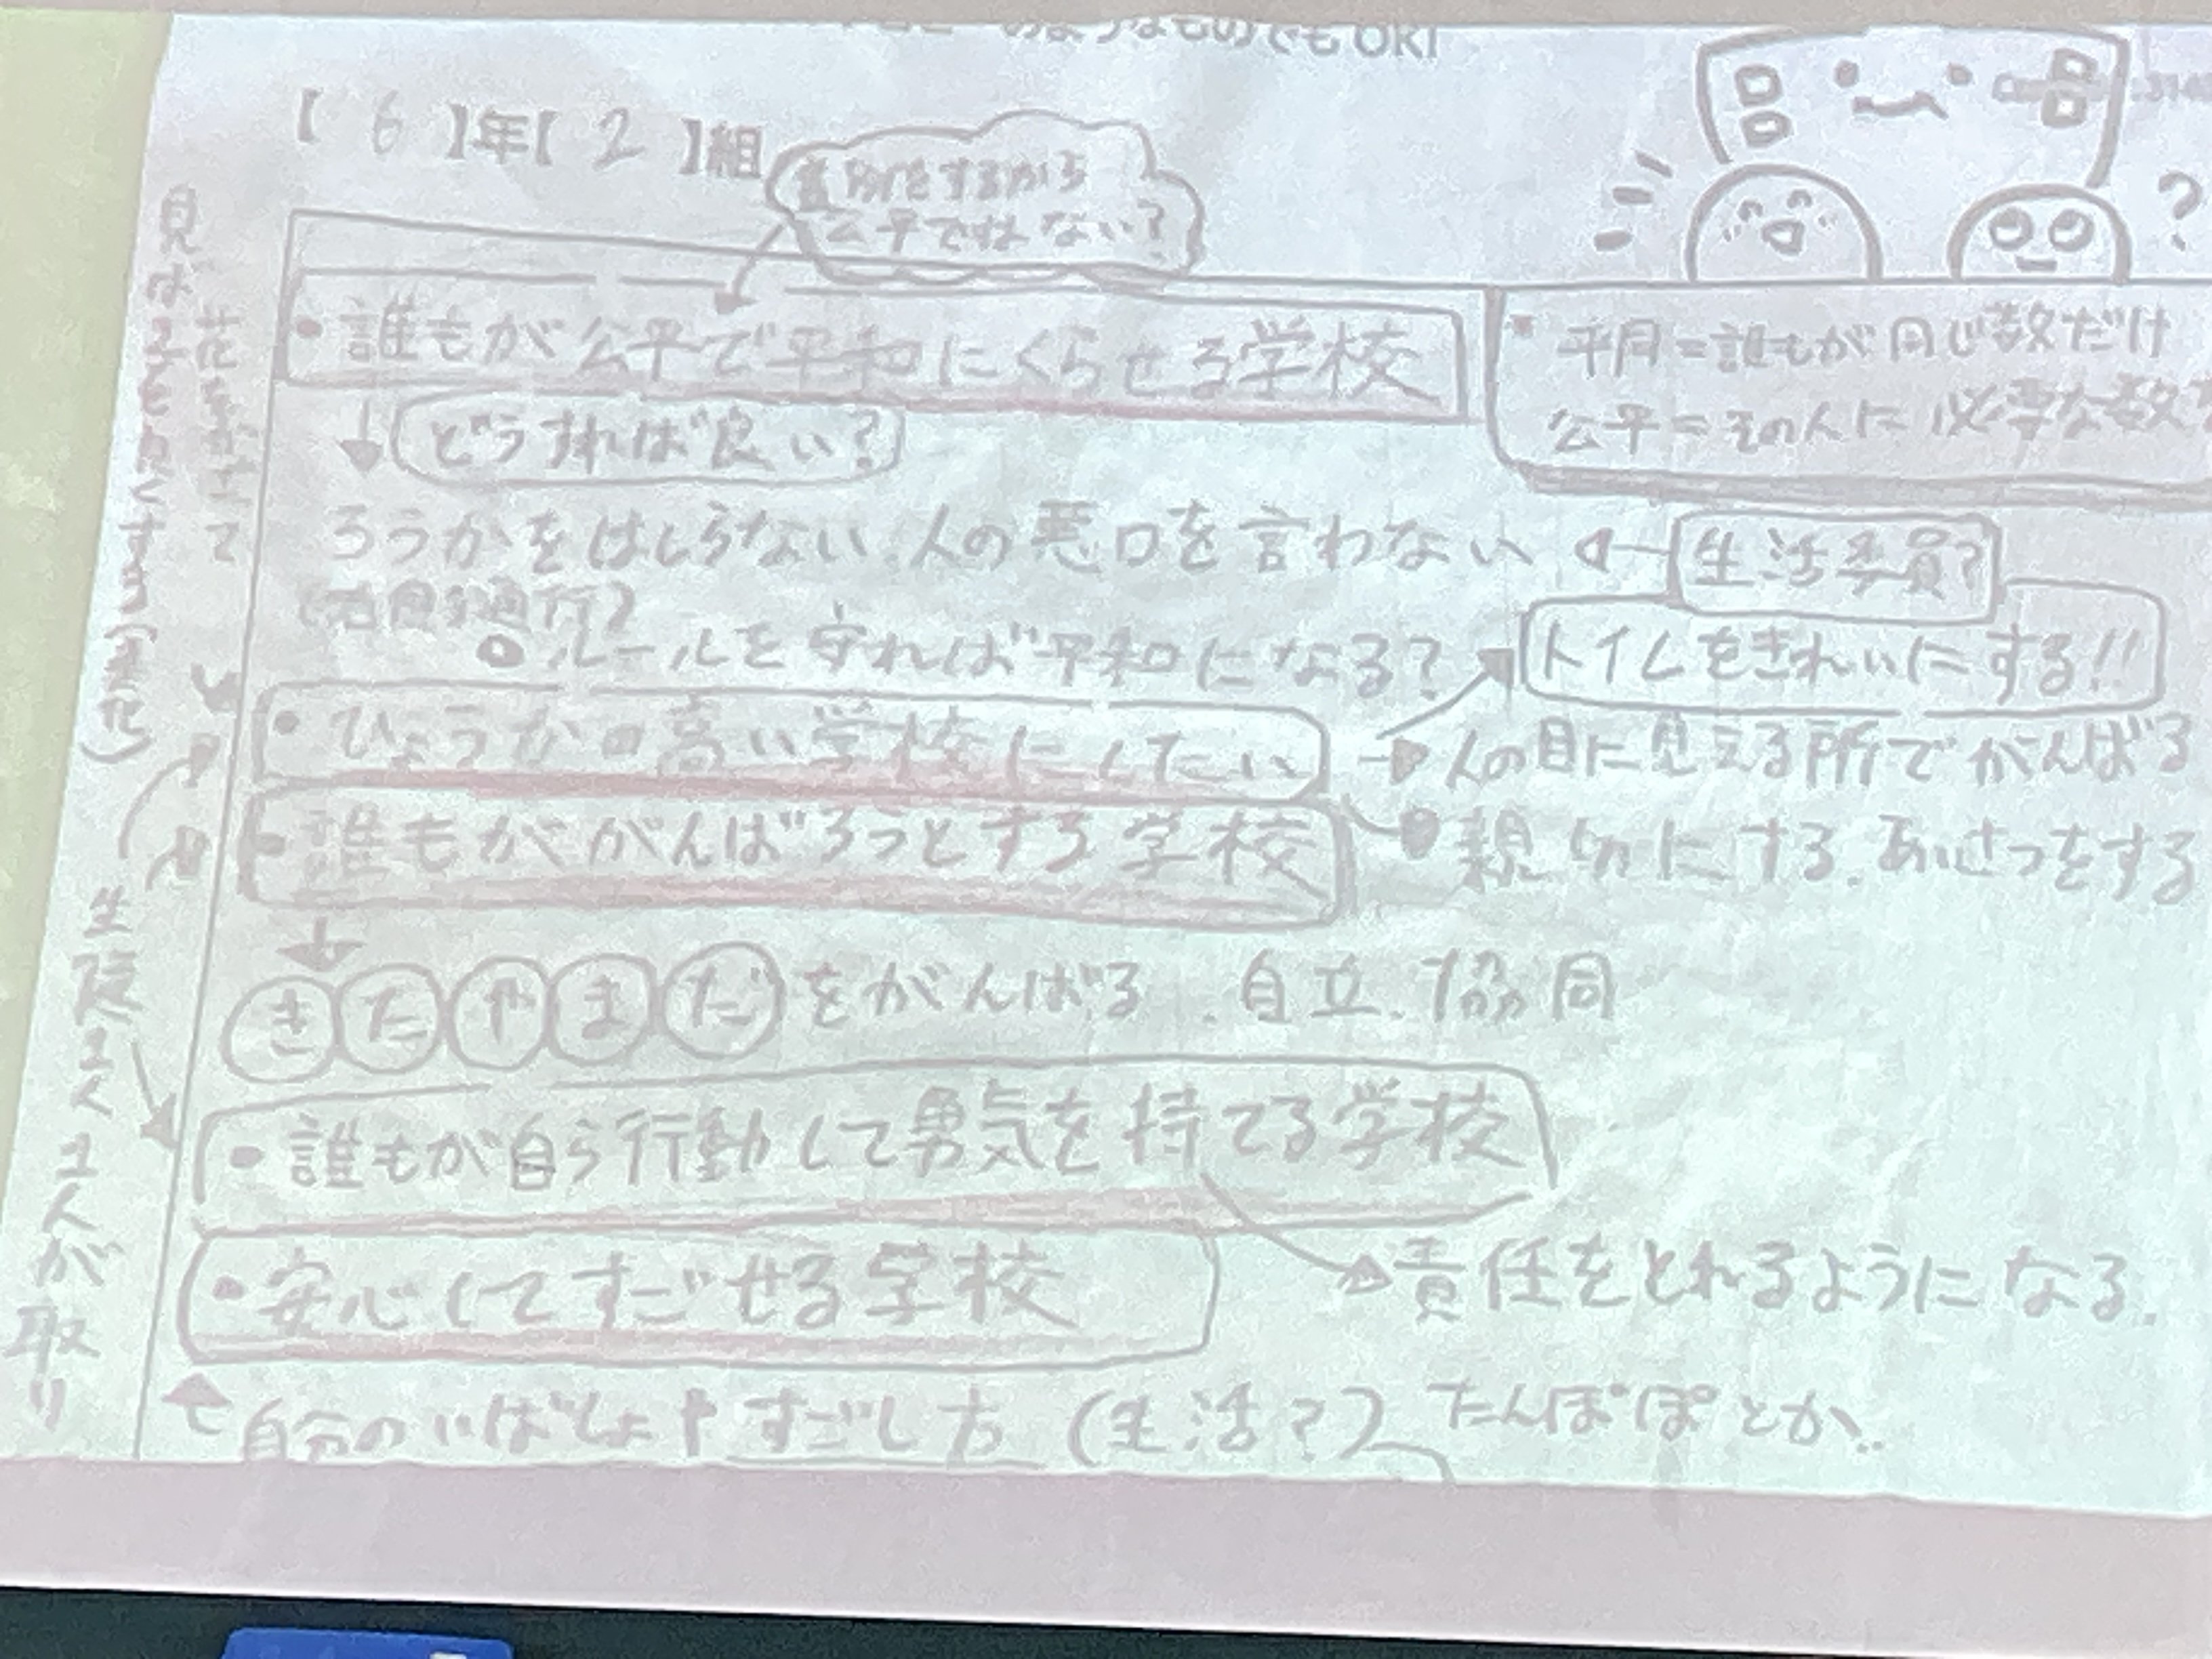 のようなものでもOK!
【 6 】年【 2 】組
別をするから
公平ではない?
・誰もが公平で平和にくらせる学校
=誰もが同じ数だけ
公平=その人に必要な数
どうすれば良い?
ろうかをはしらない、人の悪口を言わない
生活委員?
通行?
ルールを守れば平和になる?
トイレをきれいにする!!
・ひょうかの高い学校にしたい
人の目に見える所でがんばる
・誰もががんばろうとする学校
親切にする、あいさつをする
きたやまだをがんばる、自立、協同
・誰もが自ら行動して勇気を持てる学校
・安心してすごせる学校
責任をとれるようになる。
自分のいばしょ すごし方 (生活?) たんぽぽとか、
花をさかせて
見ばえをよくする
生徒1人1人が取り